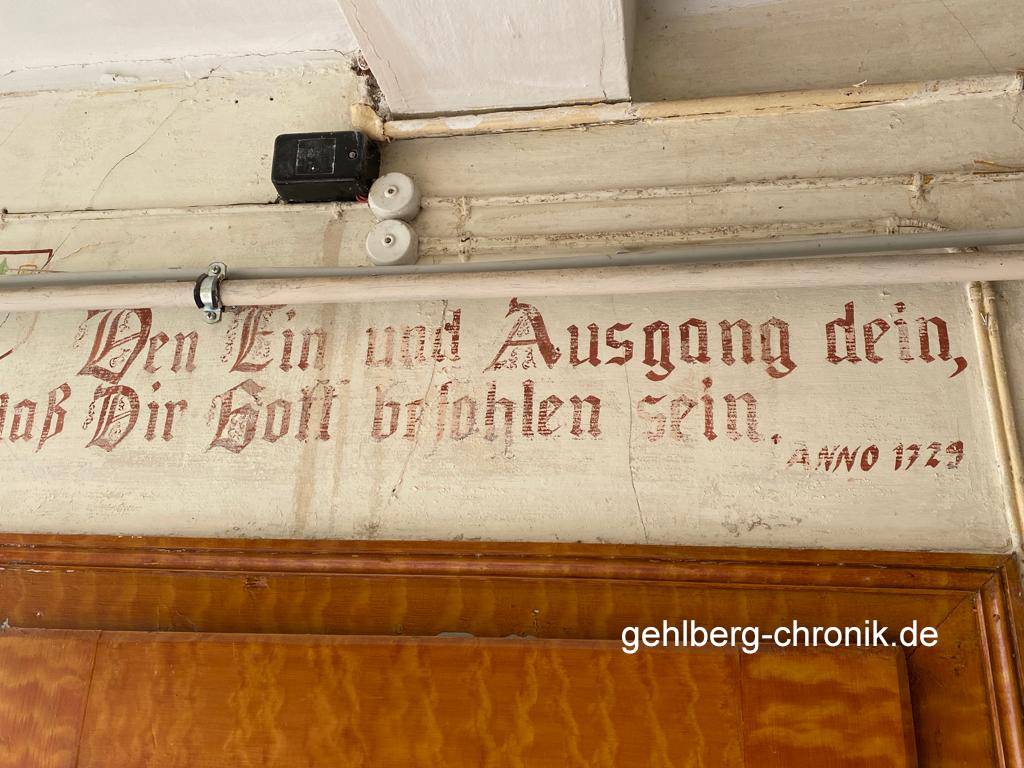 Den Ein und Ausgang dein,
laß Dir Gott befohlen sein.
ANNO 1729
gehlberg-chronik.de